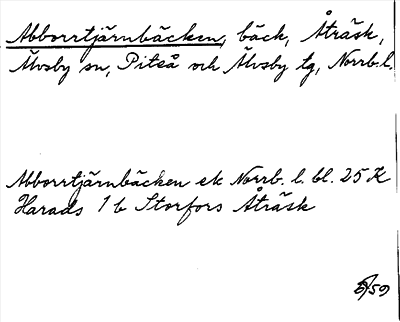 Abborrtjärnbäcken, bäck, Åträsk,
Älvsby sn, Piteå och Älvsby tg, Norrb. l.
Abborrtjärnbäcken ek Norrb. l. bl. 25 K
Harads 1 b Storfors Åträsk
/59